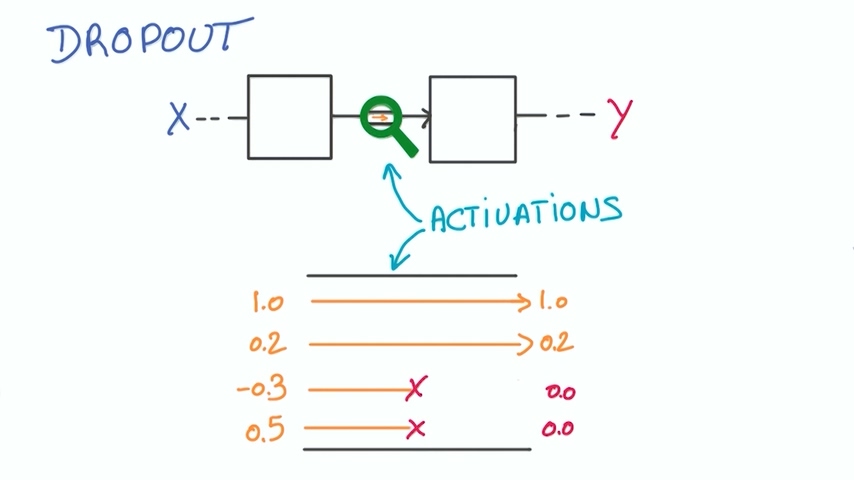 DROPOUT
X Y
ACTIVATIONS
1.0 1.0
0.2 0.2
-0.3 x 0.0
0.5 x 0.0